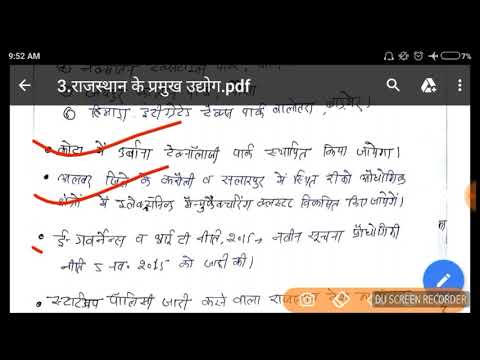 9:52 AM
7%
3.राजस्थान के प्रमुख उद्योग.pdf
⑥ इंटीग्रेटेड टेक्स पार्क बालोतरा, बाड़मेर।
• कोटा में उर्बाना टेक्नॉलाजी पार्क स्थापित किया जायेगा।
• अलवर जिले के करौली व सलारपुर में स्थित रीको औद्योगिक
क्षेत्रों में इलेक्ट्रॉनिक मैन्युफैक्चरिंग क्लस्टर विकसित किए जायेंगे।
• ई-गवर्नेन्स व आई टी नीति, 2015 → नवीन सूचना प्रौद्योगिकी
नीति 5 नव. 2015 को जारी की।
• स्टार्टअप पॉलिसी जारी करने वाला
DU SCREEN RECORDER